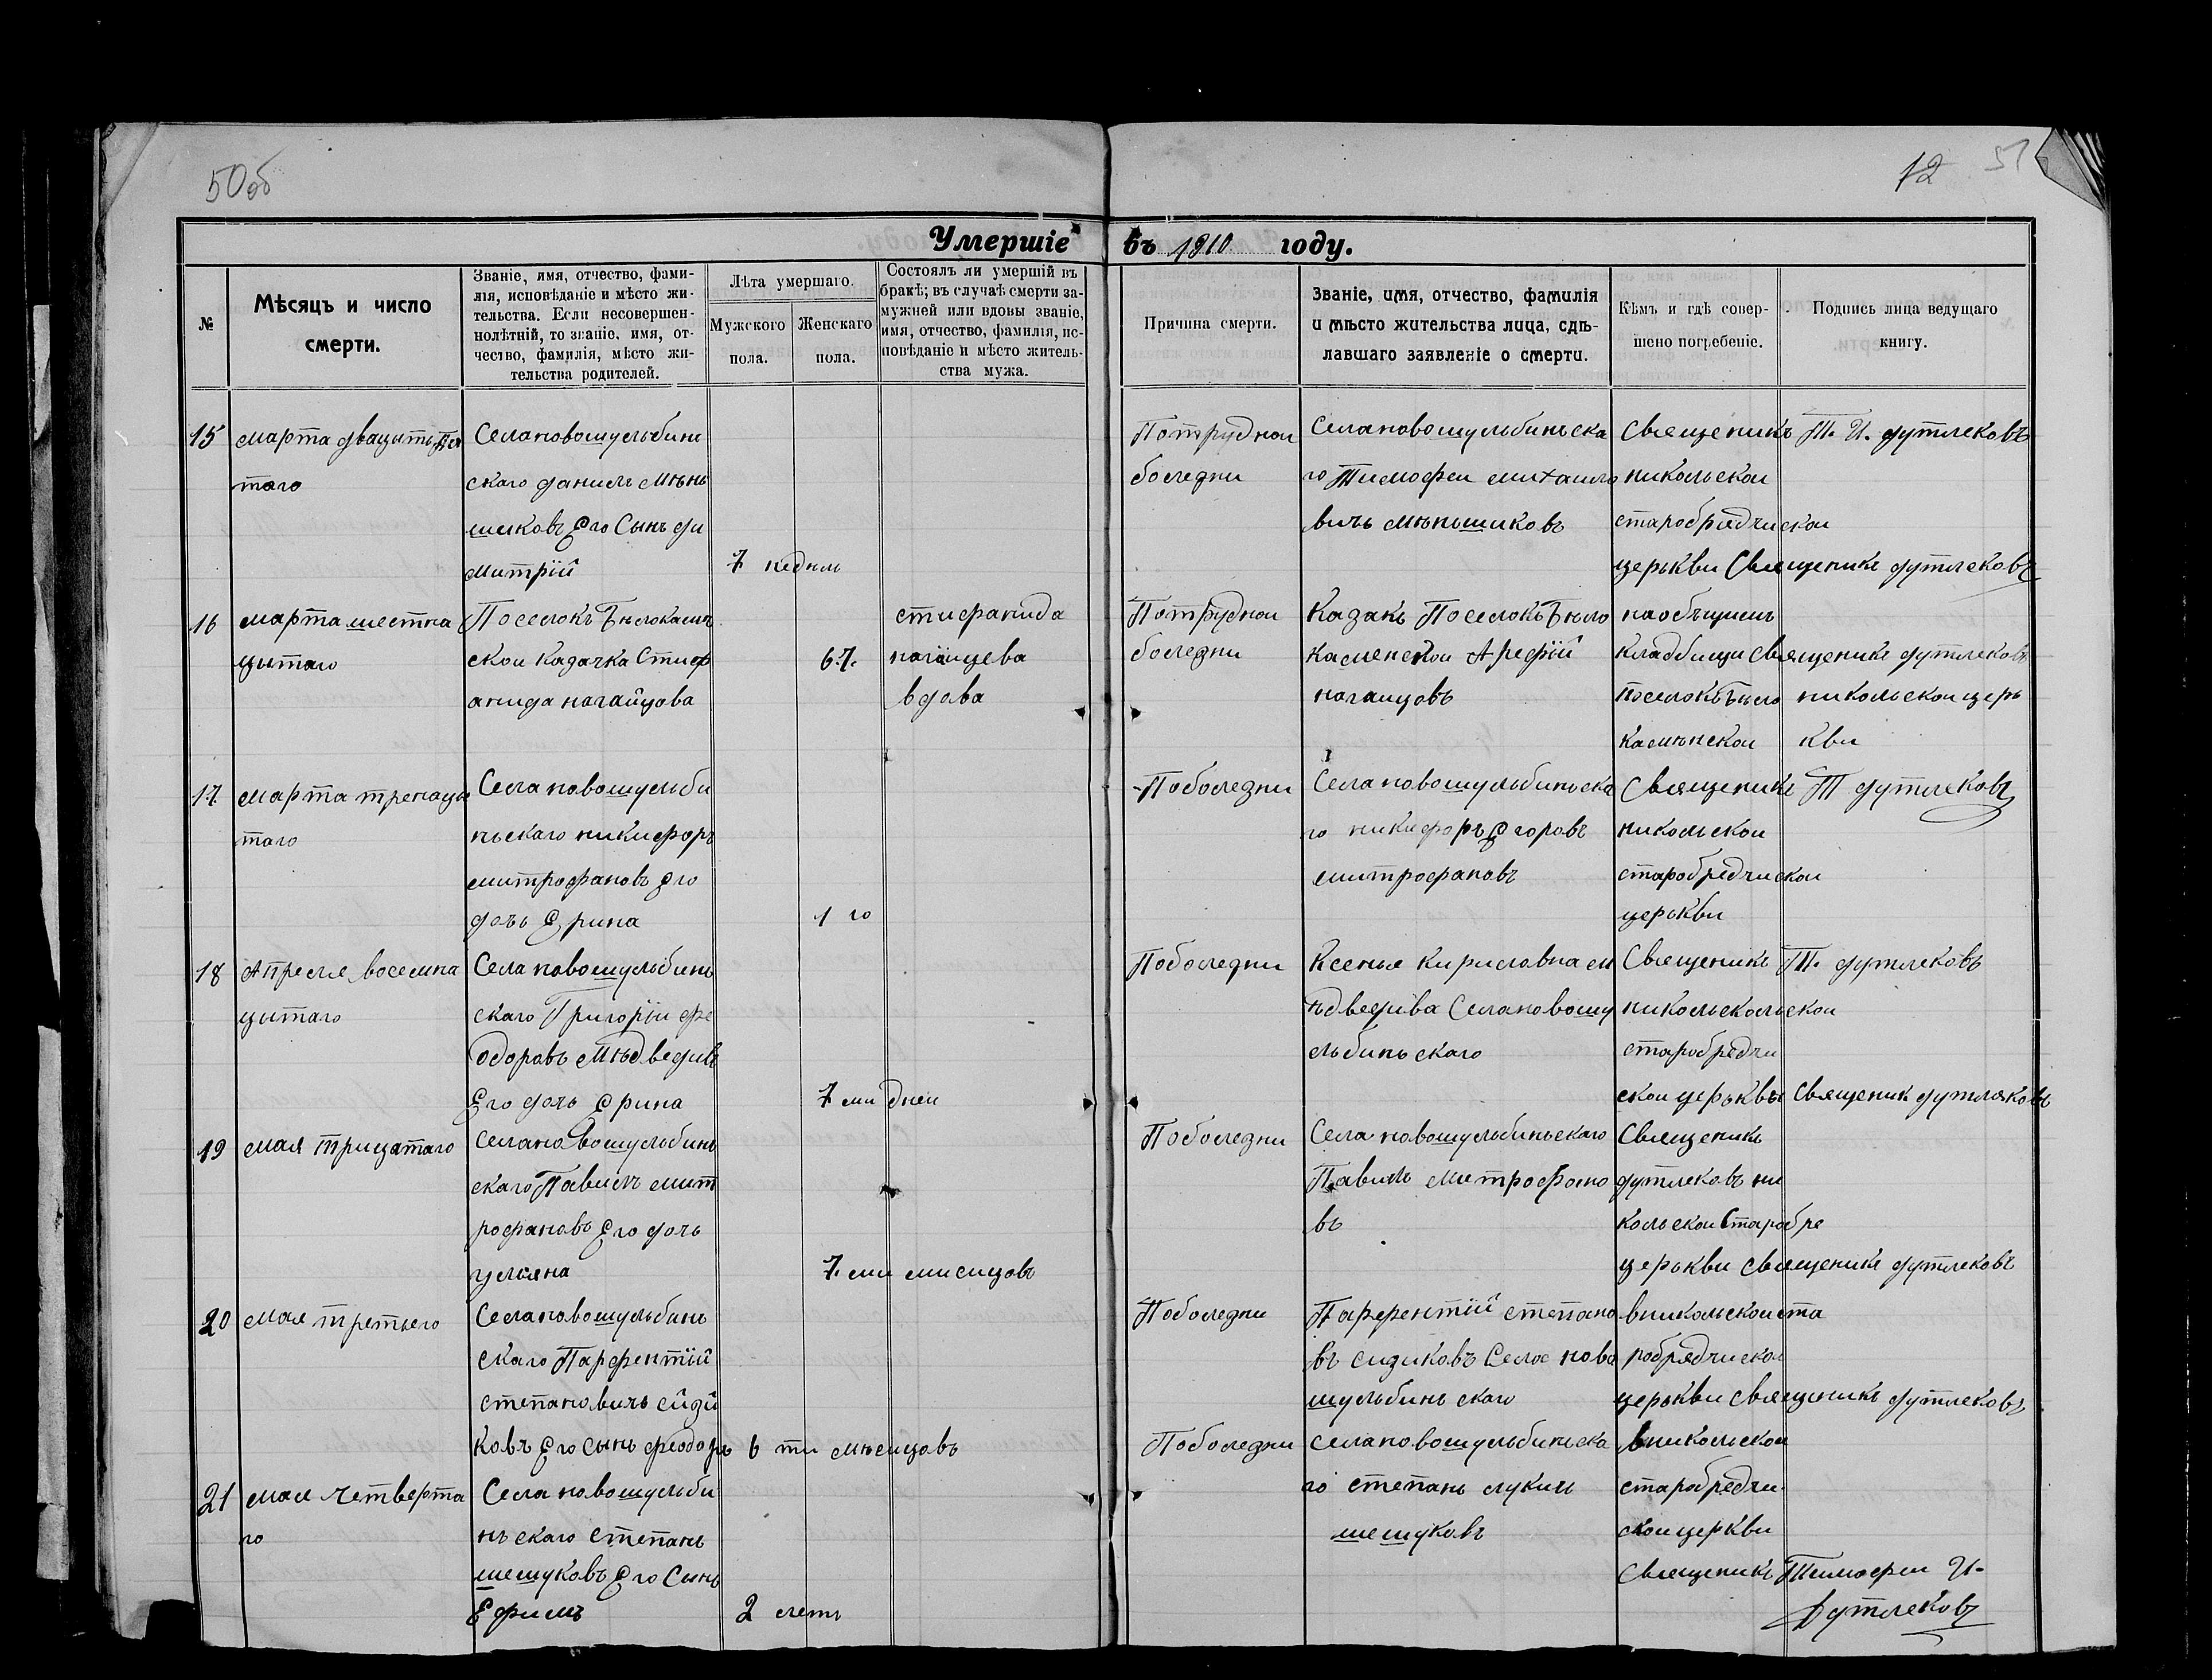 50об
12 51
Умершіе въ 1910 году.
№
Мѣсяцъ и число
смерти.
Званіе, имя, отчество, фами-
лія, исповѣданіе и мѣсто жи-
тельства. Если несовершен-
нолѣтній, то званіе, имя, от-
чество, фамилія, мѣсто жи-
тельства родителей.
Лѣта умершаго.
Мужского
пола.
Женскаго
пола.
Состоялъ ли умершій въ
бракѣ; въ случаѣ смерти за-
мужней или вдовы званіе,
имя, отчество, фамилія, ис-
повѣданіе и мѣсто житель-
ства мужа.
Причина смерти.
Званіе, имя, отчество, фамилія
и мѣсто жительства лица, сдѣ-
лавшаго заявленіе о смерти.
Кѣмъ и гдѣ совер-
шено погребеніе.
Подпись лица ведущаго
книгу.
15
марта двацыть пя
таго
Селановошульбинь
скаго данилъ мѣнь
шиковъ Его Сынъ ди
митрій
7 недѣль
Потруднои
боледни
Селановошульбиньска
го Тимофеи михаило
вичь мѣньшиковъ
Священикъ
никольскои
старобрядчискои
церькви Священикъ дутлековъ
Т. И. дутлековъ
16
марта шестна
цытаго
Поселокъ Бѣлокаменъ
скои казачка Стиф
анида нагайцова
67.
стифанида
нагаицева
вдова
Потруднои
боледни
Казакъ Поселокъ Бѣло
каменской Арефій
нагаицовъ
наобъщемъ
кладбищи Священикъ дутлековъ
поселокъ Бѣло
камѣнскои
никольскои церь
кви
17.
марта тренацы
таго
Села новошульби
ньскаго никифоръ
митрофановъ Его
дочь Ерина
1 го
Поболезни
Села новошульбиньска
го никифоръ Егоровъ
митрофановъ
Священикъ
никольскои
старобрѣдчискои
церькви
Т дутлековъ
18
Апреля восемна
цытаго
Села новошульбинь
скаго Григоріи фе
одоровъ Мѣдведивъ
Его дочь Ерина
7 ми днеи
Поболедни
Ксенья кириловна м
ѣдведива Селановошу
льбиньскаго
Священикъ
никольскольскои
старобредчи
скои церькви Священик дутляковъ
Т. дутлековъ
19
мая трицатаго
селановошульбинь
скаго Павилъ мит
рофановъ Его дочь
ульяна
7. ми мисицовъ
Поболедни
Села новошульбиньскаго
Павилъ митрофоно
въ
Священикъ
дутлековъ ни
кольскои Старобре
церькви священикъ дутлековъ
20
мая третьего
Селановошульбинь
скаго Парфентій
степановичь сиди
ковъ Его сынъ феодоръ
6 ти мѣсицовъ
Поболедни
Парфентій степано
въ сидиковъ Селое ново
шульбинь скаго
вникольскои ста
робрядчискои
церькви священикъ дутлековъ
21
мая четверта
го
Села новошульби
нь скаго степанъ
шешуковъ Его Сынъ
Ефимъ
2 летъ
Поболедни
Селановошульбиньска
го степанъ лукич
шешуковъ
вникольскои
старобредчи
скои церкви
Священикъ Тимофеи И.
Дутлековъ